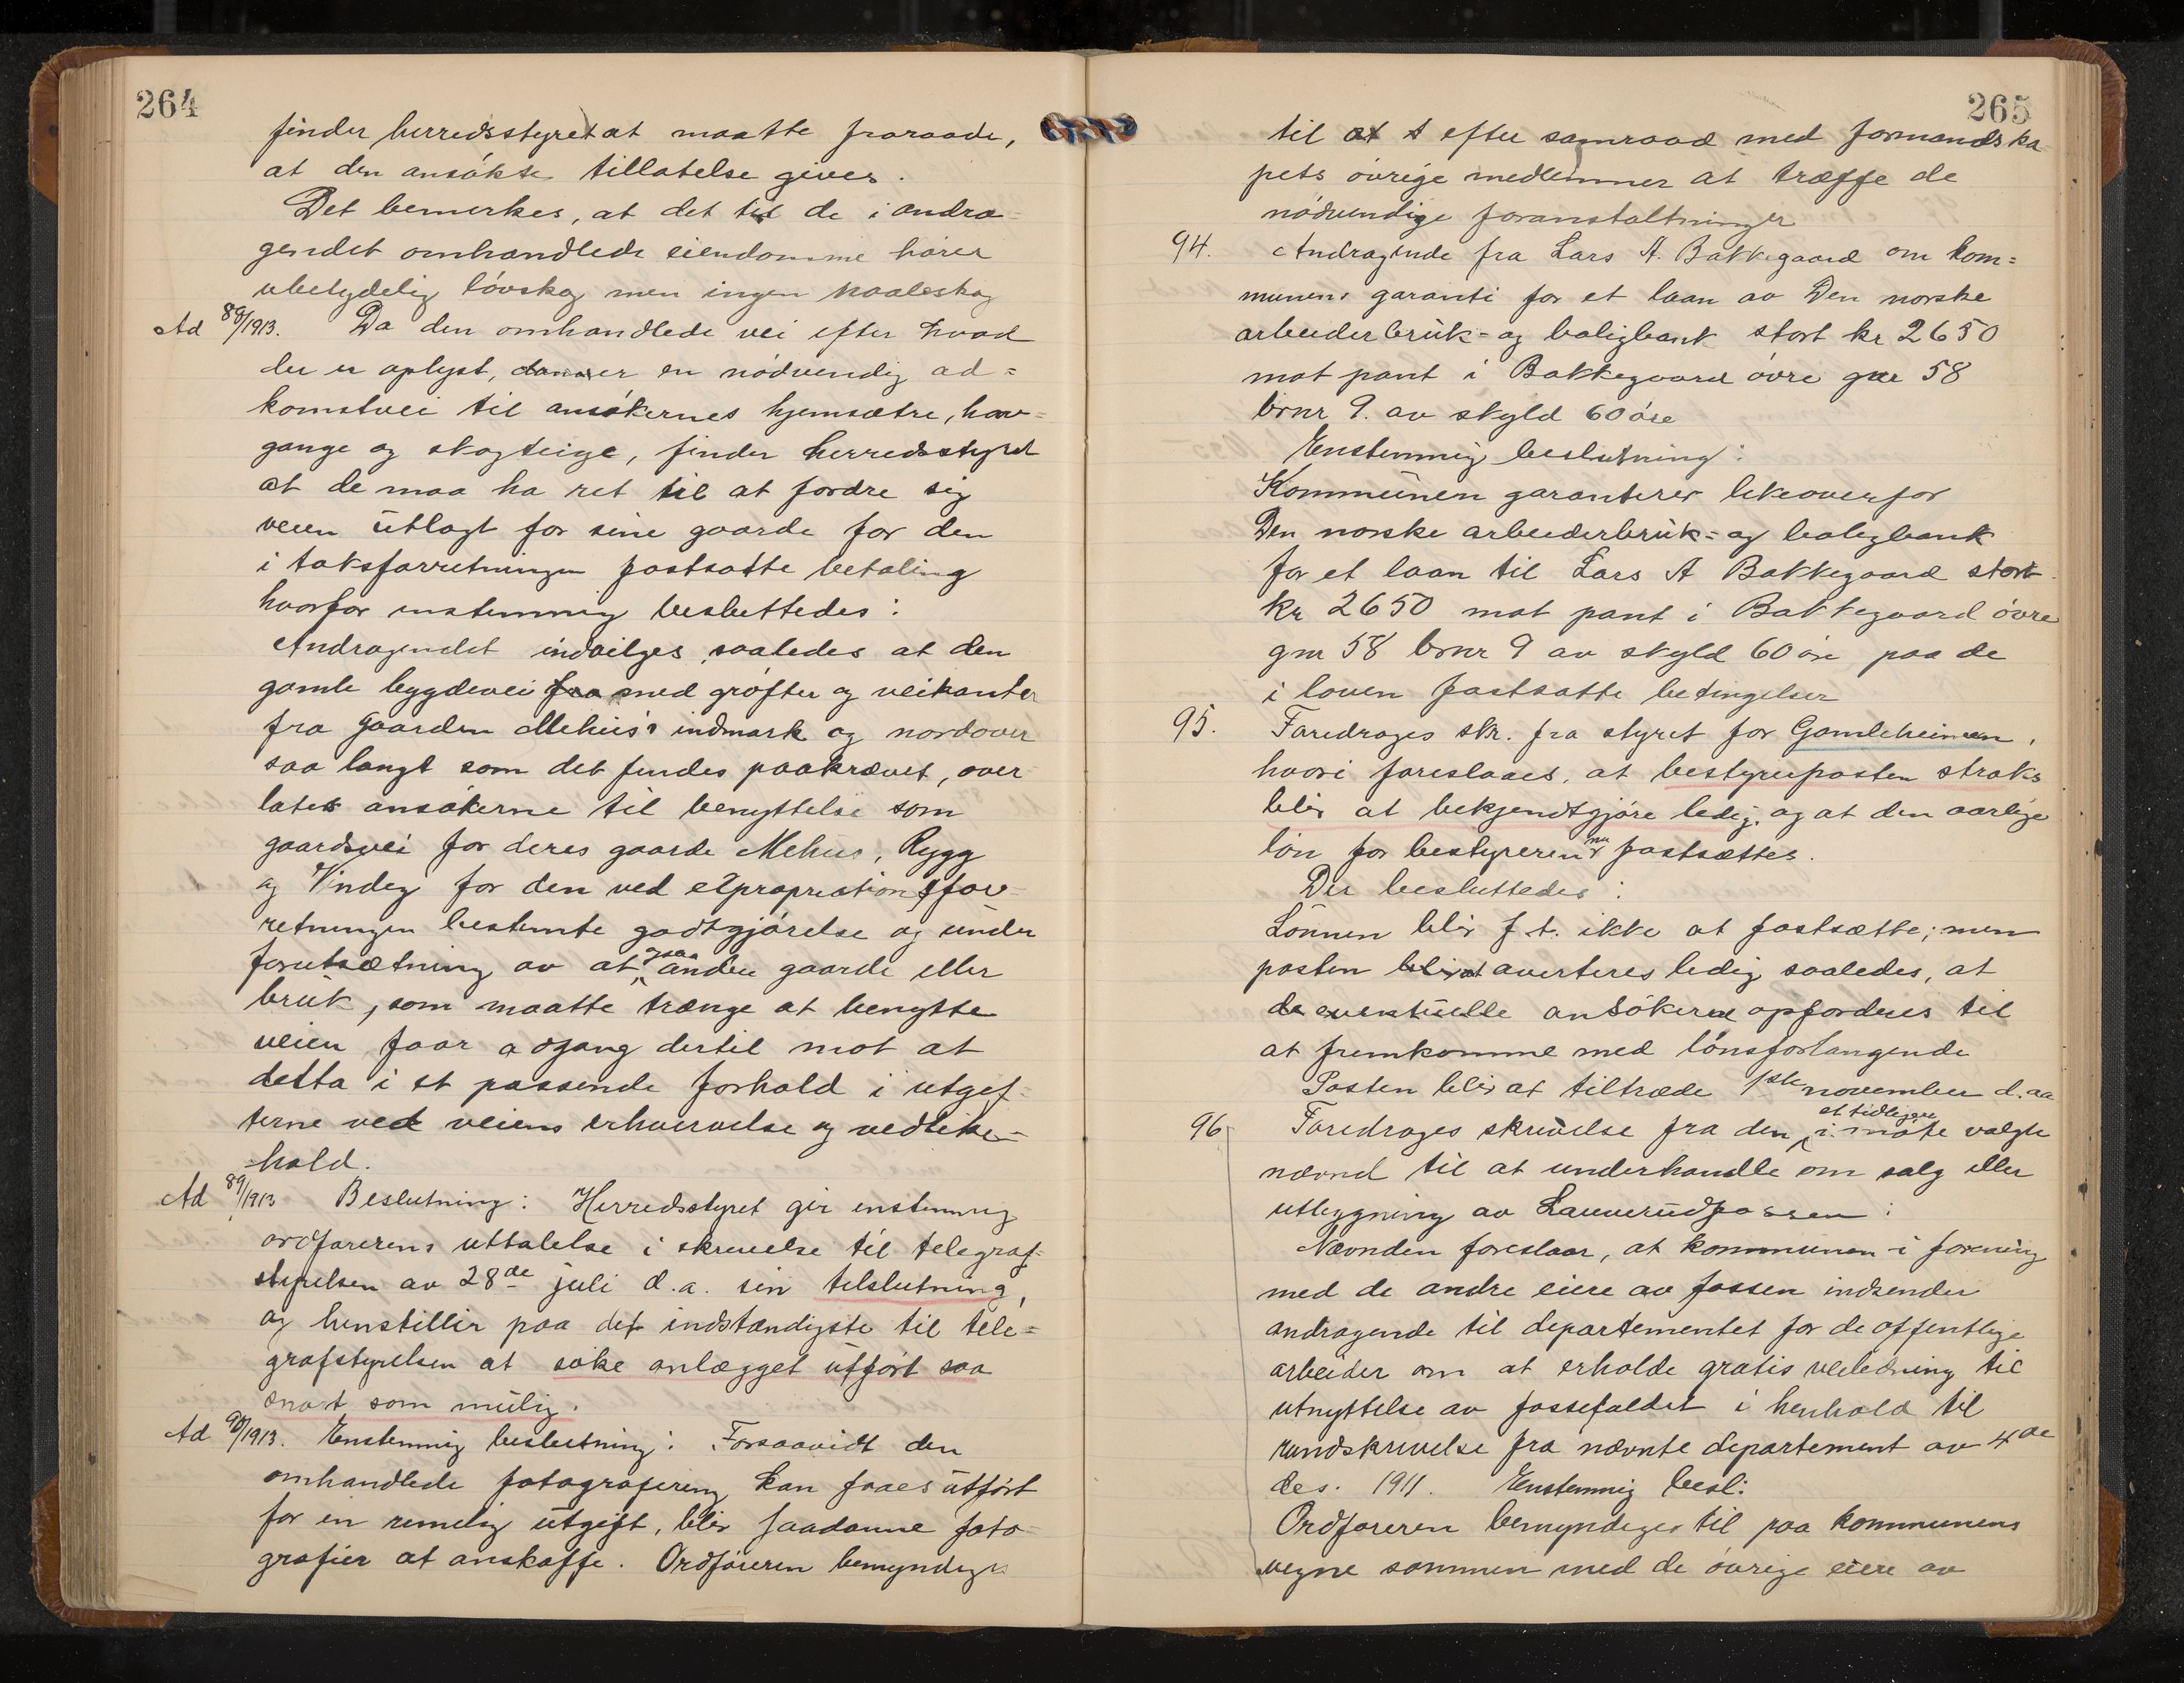 264
finder herredsstyret at maatte fraraade,
at den ansökte tillatelse gives.
Det bemerkes, at det til de i andra-
gendet omhandlede eiendomme hörer
ubetydelig lövskog men ingen naaleskog
Ad 88/1913. Da den omhandlede vei efter hvad
der er oplyst, danner en nödvendig ad=
komstvei til ansökernes hjemsætre, hav=
gange og skogteige, finder herredsstyret
at de maa ha ret til at fordre sig
veien utlagt for sine gaarde for den
i taksforretningen fastsatte betaling
hvorfor enstemmig besluttedes:
Andragendet indvilges saaledes at den
gamle bygdevei fra med gröfter og veikanter
fra gaarden Mehus's indmark og nordover
saa langt som det findes paakrævet, over
lates ansökerne til benyttelse som
gaardsvei for deres gaarde Mehus, Rygg
og Vindeg for den ved expropriationsfor-
retningen bestemte godtgjörelse og under
forutsætning av at ogsaa andre gaarde eller
bruk, som maatte trænge at benytte
veien faar adgang dertil mot at
detta i et passende forhold i utgif-
terne ved veiens erhvervelse og vedlike-
hold.
Ad 89/1913 Beslutning: Herredsstyret gir enstemmig
ordförerens uttalelse i skrivelse til telegraf-
styrelsen av 28de juli d.a. sin tilslutning,
og henstiller paa det indstændigste til tele=
grafstyrelsen at söke anlægget utfört saa
snart som mulig.
Ad 90/1913. Enstemmig beslutning: Forsaavidt den
omhandlede fotografering kan faaes utfört
for en rimelig utgift, blir saadanne foto-
grafier at anskaffe. Ordföreren bemyndiges
265
til at efter samraad med formandska
pets övrige medlemmer at træffe de
nödvendige foranstaltninger
94. Andragende fra Lars A. Bakkegaard om kom=
munens garanti for et laan av Den norske
arbeiderbruk- og boligbank stort kr 2650
mot pant i Bakkegaard övre gnr 58
brnr 9. av skyld 60 öre
Enstemmig beslutning:
Kommunen garanterer likeoverfor
Den norske arbeiderbruk= og boligbank
for et laan til Lars A Bakkegaard stort
kr 2650 mot pant i Bakkegaard övre
gnr 58 brnr 9 av skyld 60 öre paa de
i loven fastsatte betingelser
95. Foredrages skr. fra styret for Gamleheimen,
hvori foreslaaes, at bestyrerposten straks
blir at bekjendtgjöre ledig, og at den aarlige
lön for bestyreren nu fastsættes.
Der besluttedes:
Lönnen blir f.t. ikke at fastsætte; men
posten blir at averteres ledig saaledes, at
de eventuelle ansökere opfordres til
at fremkomme med lönsforlangende
Posten blir at tiltræde 1ste november d.aa
96 Foredrages skrivelse fra den i et tidligere möte valgte
nævnd til at underhandle om salg eller
utbygning av Lauverudfossen:
Nævnden foreslaar, at kommunen i forening
med de andre eiere av fossen indsender
andragende til departementet for de offentlige
arbeider om at erholde gratis veiledning til
utnyttelse av fossefaldet i henhold til
rundskrivelse fra nævnte departement av 4de
des. 1911. Enstemmig besl:
Ordföreren bemyndiges til paa kommunens
vegne sammen med de övrige eiere av